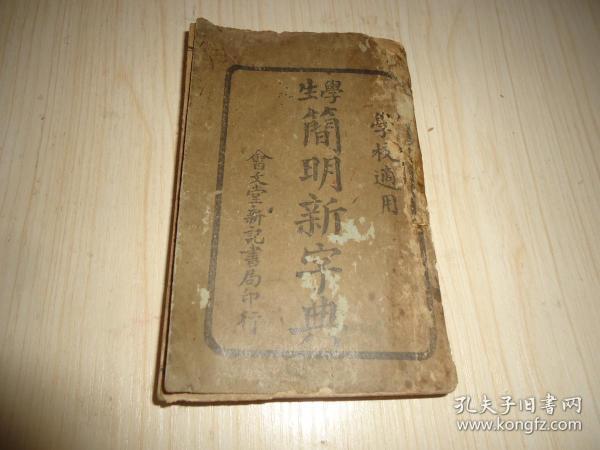 學校適用
學生
簡明新字典
會文堂新記書局印行
孔夫子旧书网
www.kongfz.com